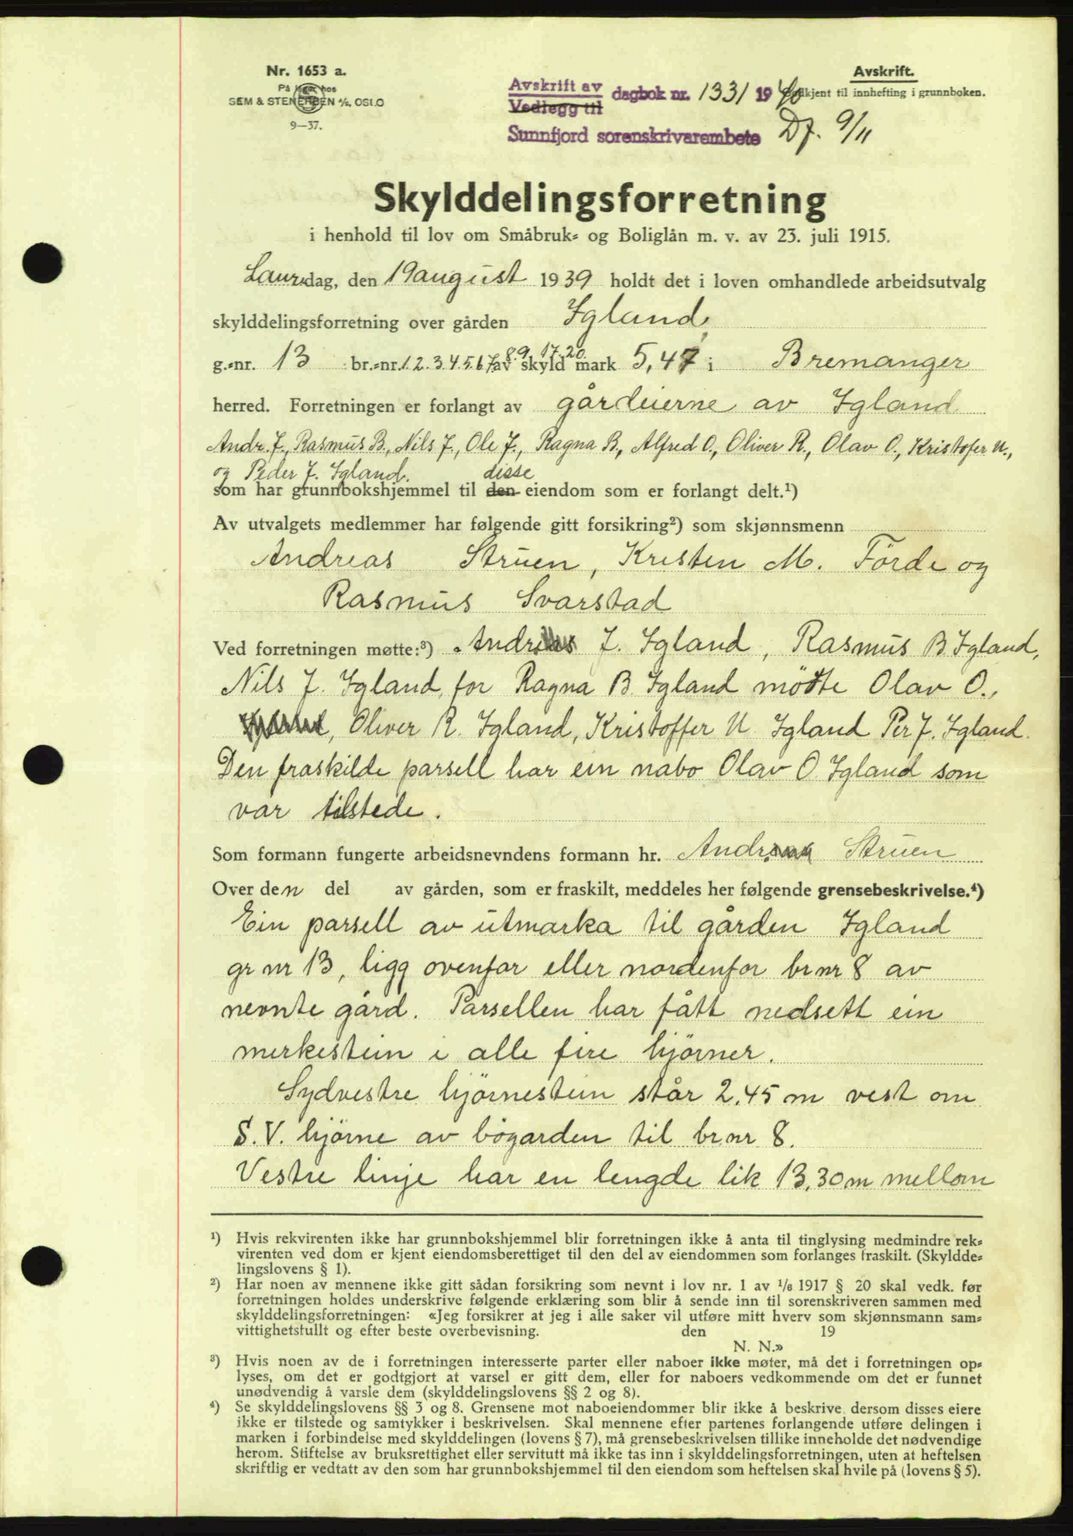 Nr. 1653 a.
På lager hos
SEM & STENERSEN A/S, OSLO
9—37.
Avskrift.
Godkjent til innhefting i grunnboken.
Avskrift av
Vedlegg til
dagbok nr. 1331 1940
Sunnfjord sorenskrivarembete
Df. 9/11
Skylddelingsforretning
i henhold til lov om Småbruk- og Boliglån m. v. av 23. juli 1915.
Laurdag, den 19 august 1939 holdt det i loven omhandlede arbeidsutvalg
skylddelingsforretning over gården Igland,
g.-nr. 13 br.-nr. 1.2.3.4.5.6.7.8.9.17.20. av skyld mark 5,47 i Bremanger
herred. Forretningen er forlangt av gårdeierne av Igland
Andr. J., Rasmus B., Nils J., Ole J., Ragna B., Alfred O., Oliver R., Olav O., Kristofer N.,
og Peder J. Igland.
som har grunnbokshjemmel til den disse eiendom som er forlangt delt.¹)
Av utvalgets medlemmer har følgende gitt forsikring²) som skjønnsmenn
Andreas Struen, Kristen M. Förde og
Rasmus Svarstad
Ved forretningen møtte:³) Andreas J. Igland, Rasmus B Igland,
Nils J. Igland, for Ragna B. Igland mötte Olav O.,
Oliver R. Igland, Kristoffer N Igland Per J. Igland.
Den fraskilde parsell har ein nabo Olav O Igland som
var tilstede.
Som formann fungerte arbeidsnevndens formann hr. Andreas Struen
Over den del av gården, som er fraskilt, meddeles her følgende grensebeskrivelse.⁴)
Ein parsell av utmarka til gården Igland
gr nr 13, ligg ovenfor eller nordenfor br nr 8 av
nevnte gård. Parsellen har fått nedsett ein
merkestein i alle fire hjörner.
Sydvestre hjörnestein står 2.45 m vest om
S.V. hjörne av bögarden til br. nr 8.
Vestre linje har en lengde lik 13,30 m mellom
¹) Hvis rekvirenten ikke har grunnbokshjemmel blir forretningen ikke å anta til tinglysing medmindre rek-
virenten ved dom er kjent eiendomsberettiget til den del av eiendommen som forlanges fraskilt. (Skyldde-
lingslovens § 1).
²) Har noen av mennene ikke gitt sådan forsikring som nevnt i lov nr. 1 av 1/6 1917 § 20 skal vedk. før
forretningen holdes underskrive følgende erklæring som blir å sende inn til sorenskriveren sammen med
skylddelingsforretningen: «Jeg forsikrer at jeg i alle saker vil utføre mitt hverv som skjønnsmann sam-
vittighetsfullt og efter beste overbevisning. den 19
N. N.»
³) Hvis noen av de i forretningen interesserte parter eller naboer ikke møter, må det i forretningen op-
lyses, om det er godtgjort at varsel er gitt dem, eller for naboers vedkommende om det er funnet
unødvendig å varsle dem (skylddelingslovens §§ 2 og 8).
⁴) Se skylddelingslovens §§ 3 og 8. Grensene mot naboeiendommer blir ikke å beskrive, dersom disses eiere
ikke er tilstede og samtykker i beskrivelsen. Skal mennene efter partenes forlangende utføre delingen i
marken i forbindelse med skylddelingen (lovens § 7), må grensebeskrivelsen tillike inneholde det nødvendige
herom. Stiftelse av bruksrettighet eller servitutt må ikke tas inn i skylddelingsforretningen, uten at heftelsen
skriftlig er vedtatt av den som har grunnbokshjemmel til den eiendom som heftelsen skal hvile på (lovens § 5).